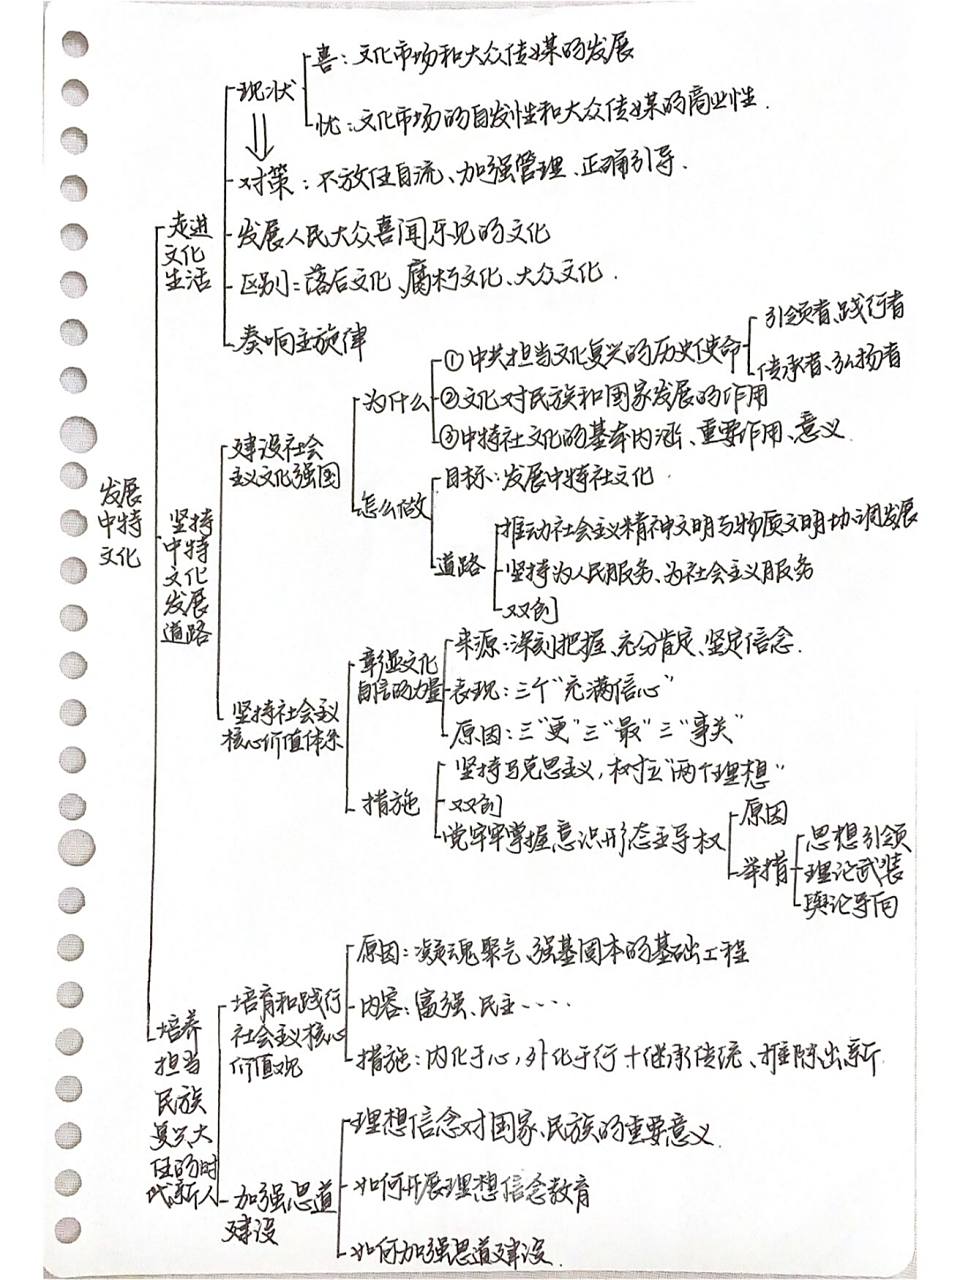 发展
中特
文化
走进
文化
生活
现状
喜：文化市场和大众传媒的发展
忧：文化市场的自发性和大众传媒的商业性．
对策：不放任自流、加强管理、正确引导．
发展人民大众喜闻乐见的文化
区别：落后文化、腐朽文化、大众文化．
奏响主旋律
坚持
中特
文化
发展
道路
建设社会
主义文化强国
为什么
①中共担当文化复兴的历史使命
引领者、践行者
传承者、弘扬者
②文化对民族和国家发展的作用
③中特社文化的基本内涵、重要作用、意义．
怎么做
目标：发展中特社文化．
道路
推动社会主义精神文明与物质文明协调发展
坚持为人民服务、为社会主义服务
双创
坚持社会主义
核心价值体系
彰显文化
自信的力量
来源：深刻把握、充分肯定、坚定信念．
表现：三个“充满信心”
原因：三“更”三“最”三“事关”
措施
坚持马克思主义，树立“两个理想”
双创
党牢牢掌握意识形态主导权
原因
举措
思想引领
理论武装
舆论导向
培养
担当
民族
复兴大
任的时
代新人
培育和践行
社会主义核心
价值观
原因：凝魂聚气、强基固本的基础工程
内容：富强、民主····
措施：内化于心，外化于行＋继承传统、推陈出新
加强思道
建设
理想信念对国家、民族的重要意义．
如何开展理想信念教育
如何加强思道建设．